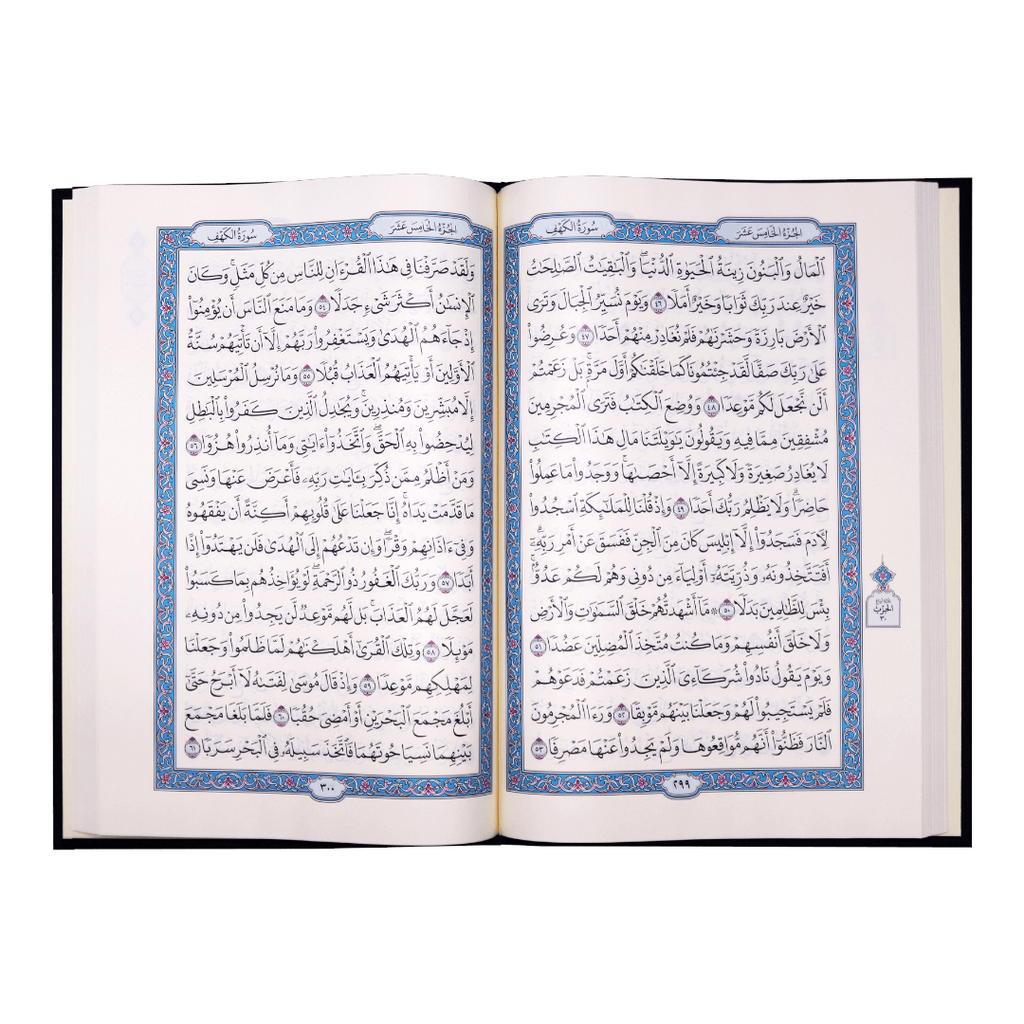 الجزء الخامس عشر
سورة الكهف
ٱلۡمَالُ وَٱلۡبَنُونَ زِينَةُ ٱلۡحَيَوٰةِ ٱلدُّنۡيَاۖ وَٱلۡبَٰقِيَٰتُ ٱلصَّٰلِحَٰتُ
خَيۡرٌ عِندَ رَبِّكَ ثَوَابٗا وَخَيۡرٌ أَمَلٗا ٤٦ وَيَوۡمَ نُسَيِّرُ ٱلۡجِبَالَ وَتَرَى
ٱلۡأَرۡضَ بَارِزَةٗ وَحَشَرۡنَٰهُمۡ فَلَمۡ نُغَادِرۡ مِنۡهُمۡ أَحَدٗا ٤٧ وَعُرِضُواْ
عَلَىٰ رَبِّكَ صَفّٗا لَّقَدۡ جِئۡتُمُونَا كَمَا خَلَقۡنَٰكُمۡ أَوَّلَ مَرَّةِۭۚ بَلۡ زَعَمۡتُمۡ
أَلَّن نَّجۡعَلَ لَكُم مَّوۡعِدٗا ٤٨ وَوُضِعَ ٱلۡكِتَٰبُ فَتَرَى ٱلۡمُجۡرِمِينَ
مُشۡفِقِينَ مِمَّا فِيهِ وَيَقُولُونَ يَٰوَيۡلَتَنَا مَالِ هَٰذَا ٱلۡكِتَٰبِ
لَا يُغَادِرُ صَغِيرَةٗ وَلَا كَبِيرَةً إِلَّآ أَحۡصَىٰهَاۚ وَوَجَدُواْ مَا عَمِلُواْ
حَاضِرٗاۗ وَلَا يَظۡلِمُ رَبُّكَ أَحَدٗا ٤٩ وَإِذۡ قُلۡنَا لِلۡمَلَٰٓئِكَةِ ٱسۡجُدُواْ
لِأٓدَمَ فَسَجَدُوٓاْ إِلَّآ إِبۡلِيسَ كَانَ مِنَ ٱلۡجِنِّ فَفَسَقَ عَنۡ أَمۡرِ رَبِّهِۦٓۗ
أَفَتَتَّخِذُونَهُۥ وَذُرِّيَّتَهُۥٓ أَوۡلِيَآءَ مِن دُونِي وَهُمۡ لَكُمۡ عَدُوُّۢۚ
بِئۡسَ لِلظَّٰلِمِينَ بَدَلٗا ٥٠ ۞ مَّآ أَشۡهَدتُّهُمۡ خَلۡقَ ٱلسَّمَٰوَٰتِ وَٱلۡأَرۡضِ
وَلَا خَلۡقَ أَنفُسِهِمۡ وَمَا كُنتُ مُتَّخِذَ ٱلۡمُضِلِّينَ عَضُدٗا ٥١
وَيَوۡمَ يَقُولُ نَادُواْ شُرَكَآءِيَ ٱلَّذِينَ زَعَمۡتُمۡ فَدَعَوۡهُمۡ
فَلَمۡ يَسۡتَجِيبُواْ لَهُمۡ وَجَعَلۡنَا بَيۡنَهُم مَّوۡبِقٗا ٥٢ وَرَءَا ٱلۡمُجۡرِمُونَ
ٱلنَّارَ فَظَنُّوٓاْ أَنَّهُم مُّوَاقِعُوهَا وَلَمۡ يَجِدُواْ عَنۡهَا مَصۡرِفٗا ٥٣
٢٩٩
الحزب
٣٠
الجزء الخامس عشر
سورة الكهف
وَلَقَدۡ صَرَّفۡنَا فِي هَٰذَا ٱلۡقُرۡءَانِ لِلنَّاسِ مِن كُلِّ مَثَلٖۚ وَكَانَ
ٱلۡإِنسَٰنُ أَكۡثَرَ شَيۡءٖ جَدَلٗا ٥٤ وَمَا مَنَعَ ٱلنَّاسَ أَن يُؤۡمِنُوٓاْ
إِذۡ جَآءَهُمُ ٱلۡهُدَىٰ وَيَسۡتَغۡفِرُواْ رَبَّهُمۡ إِلَّآ أَن تَأۡتِيَهُمۡ سُنَّةُ
ٱلۡأَوَّلِينَ أَوۡ يَأۡتِيَهُمُ ٱلۡعَذَابُ قُبُلٗا ٥٥ وَمَا نُرۡسِلُ ٱلۡمُرۡسَلِينَ
إِلَّا مُبَشِّرِينَ وَمُنذِرِينَۚ وَيُجَٰدِلُ ٱلَّذِينَ كَفَرُواْ بِٱلۡبَٰطِلِ
لِيُدۡحِضُواْ بِهِ ٱلۡحَقَّۖ وَٱتَّخَذُوٓاْ ءَايَٰتِي وَمَآ أُنذِرُواْ هُزُوٗا ٥٦
وَمَنۡ أَظۡلَمُ مِمَّن ذُكِّرَ بِـَٔايَٰتِ رَبِّهِۦ فَأَعۡرَضَ عَنۡهَا وَنَسِيَ
مَا قَدَّمَتۡ يَدَاهُۚ إِنَّا جَعَلۡنَا عَلَىٰ قُلُوبِهِمۡ أَكِنَّةً أَن يَفۡقَهُوهُ
وَفِيٓ ءَاذَانِهِمۡ وَقۡرٗاۖ وَإِن تَدۡعُهُمۡ إِلَى ٱلۡهُدَىٰ فَلَن يَهۡتَدُوٓاْ إِذًا
أَبَدٗا ٥٧ وَرَبُّكَ ٱلۡغَفُورُ ذُو ٱلرَّحۡمَةِۖ لَوۡ يُؤَاخِذُهُم بِمَا كَسَبُواْ
لَعَجَّلَ لَهُمُ ٱلۡعَذَابَۚ بَل لَّهُم مَّوۡعِدٞ لَّن يَجِدُواْ مِن دُونِهِۦ
مَوۡئِلٗا ٥٨ وَتِلۡكَ ٱلۡقُرَىٰٓ أَهۡلَكۡنَٰهُمۡ لَمَّا ظَلَمُواْ وَجَعَلۡنَا
لِمَهۡلِكِهِم مَّوۡعِدٗا ٥٩ وَإِذۡ قَالَ مُوسَىٰ لِفَتَىٰهُ لَآ أَبۡرَحُ حَتَّىٰٓ
أَبۡلُغَ مَجۡمَعَ ٱلۡبَحۡرَيۡنِ أَوۡ أَمۡضِيَ حُقُبٗا ٦٠ فَلَمَّا بَلَغَا مَجۡمَعَ
بَيۡنِهِمَا نَسِيَا حُوتَهُمَا فَٱتَّخَذَ سَبِيلَهُۥ فِي ٱلۡبَحۡرِ سَرَبٗا ٦١
٣٠٠